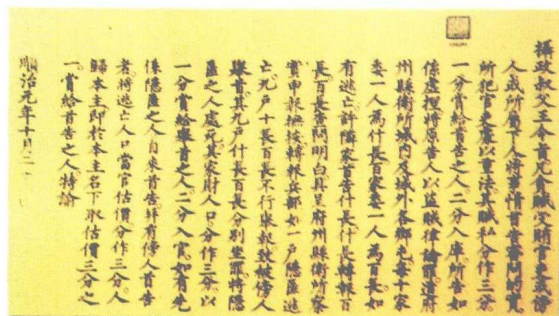 攝政叔父王令旨凡貪贓受財官吏或傍
人或所屬下人將事情首告審問的實
所犯官吏處以重法其贓私分作三分
一分賞給首告之人二分入庫所告如
係虛捏將原告人以盜賊律論罪這府
州縣衛所城內及城外各鄉屯每十家
委一人為什長百家委一人為百長如
有逃亡許隣家首告什長什長轉報百
長百長審問明白具呈府州縣衛所察
實申報撫按轉報兵部如一戶隱匿逃
亡九戶十長百長不行舉執致被傍人
舉首其九戶什長百長分別坐罪將隱
匿之人處死其家財人口分作三分以
一分賞給舉首之人二分入官如有先
係隱匿之人自來首告并有傍人首告
者將逃亡人口當官估價分作三分人
歸本主即於本主名下取估價三分之
一賞給首告之人特諭
順治元年十月二